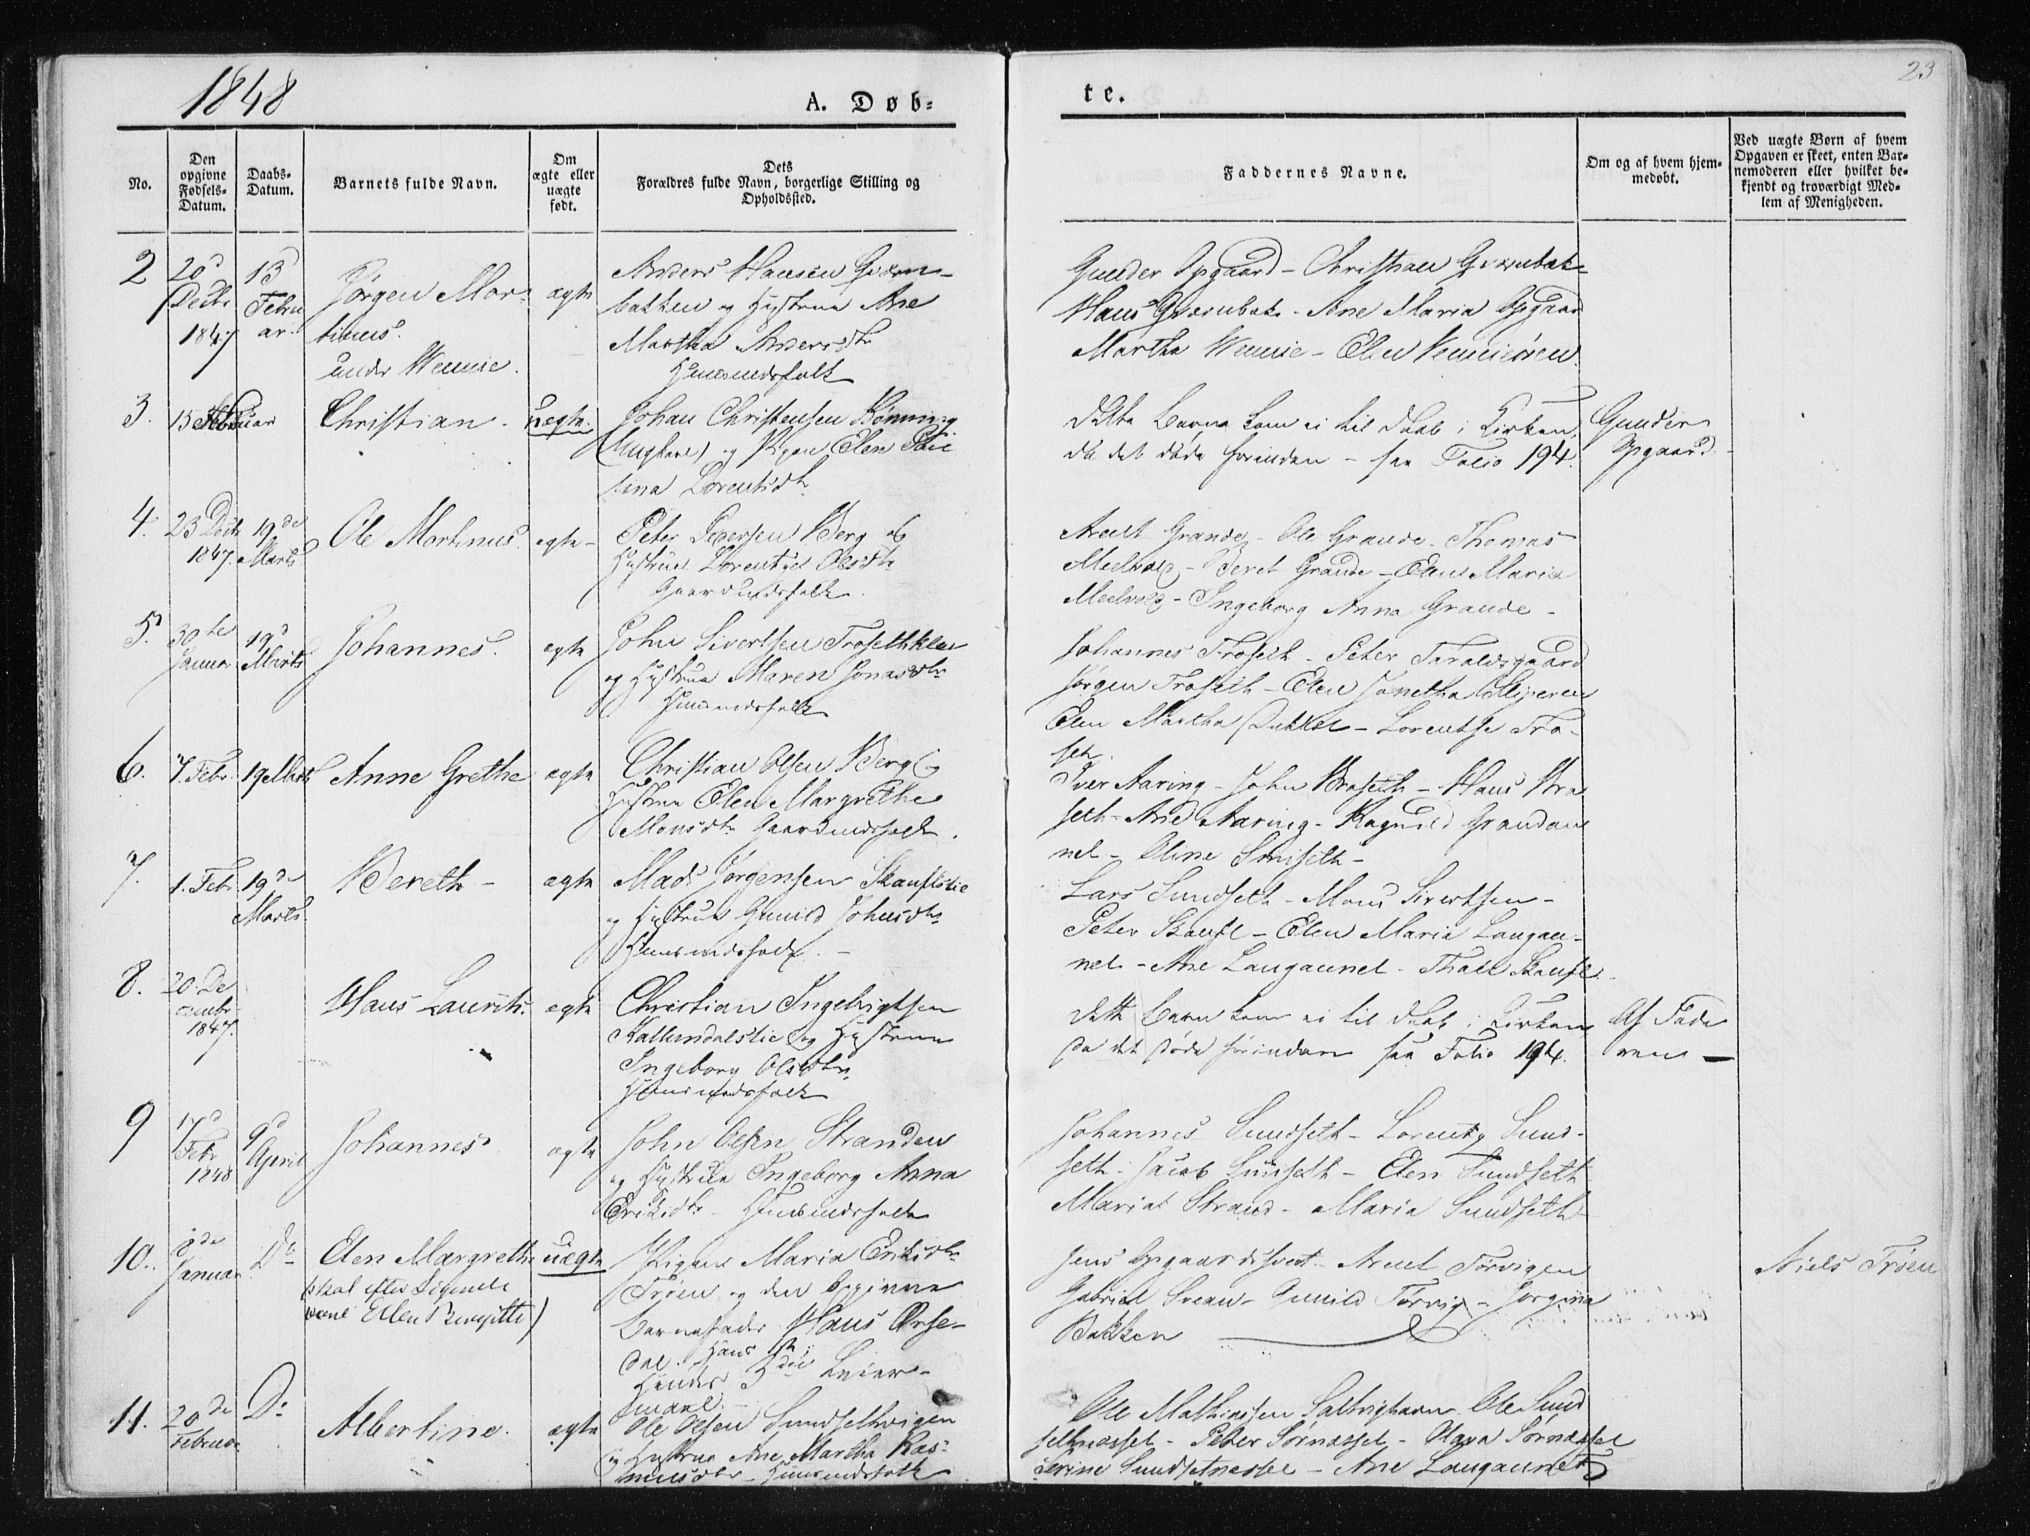 1848
A. Døb=
te.
23
No.
Den
opgivne
Fødsels-
Datum.
Daabs-
Datum.
Barnets fulde Navn.
Om
ægte eller
uægte
født.
Dets
Forældres fulde Navn, borgerlige Stilling og
Opholdssted.
Faddernes Navne.
Om og af hvem hjem-
medøbt.
Ved uægte Børn af hvem
Opgaven er skeet, enten Bar-
nemoderen eller hvilket be-
kjendt og troværdigt Med-
lem af Menigheden.
2
20d
Decbr
1847
13
Febru
ar.
Jørgen Mor-
tinus.
under Wennie.
ægte
Anders Hansen Qværn-
bakken og Hustrue Ane
Martha Andersdtr
Huusmandsfolk
Gunder Opgaard - Christian Qværnbak-
Hans Qværnbak - Ane Maria Opgaard
Martha Wennie - Elen
3.
13 Februar
Christian.
uægte.
Johan Christensen Rønning
(Ungkarl) og Pigen Elen
Lorentsdtr
Dette Barn kom ei til Daab i Kirken,
da det døde forinden - see Folio 194.
Gunder
Opgaard
4.
23 Decbr
1847.
19de
Marts
Ole Martinus.
ægte -
Peter Pedersen Berg og
Hustrue Olsdtr
Gaardmandsfolk.
Arent Grande - Ole Grande - Thomas
Beret Grande - Elen Maria
Ingeborg Anna Grande -
5.
30te
Januar
19d
Marts
Johannes.
ægte
John Sivertsen
og Hustrue Maren Jonasdtr
Huusmandsfolk
Johannes Troseth - Peter Taraldsgaard
Jørgen Troseth - Elen
Elen Martha - Lorentse Tro-
seth.
6.
7. Febr.
19 Marts
Anne Grethe
ægte
Christian Olsen Berg og
Hustrue Elen Margrethe
Monsdtr Gaardmandsfolk.
Iver Aaring - John Braseth - Hans Bra
seth - Ane Aaring - Ragnild
- Oline
7.
1. Febr.
19de
Marts.
Bereth -
ægte
Mads Jørgensen
og Hustrue Gunild Johnsdtr
Huusmandsfolk. -
Lars Sundseth - Mons Sivertsen -
Peter - Elen Maria Langau-
net - Ane Langaunet -
8.
20 De
cembr
1847.
Hans Laurits.
ægte
Christian Ingebrigtsen
og Hustrue
Ingeborg Olsdtr.
Huusmandsfolk
Dette Barn kom ei til Daab i Kirken
da det døde forinden see Folio 194.
Af Fade
ren -
9
17d
Febr
1848
9d
April
Johannes
ægte
John Olsen Stranden
og Hustrue Ingeborg Anna
Eriksdtr - Huusmandsfolk
Johannes Sundseth - Lorents Sund-
seth - Jacob Sundseth - Elen Sundseth
Maria Strand - Maria Sundseth
10.
8de
Januar
Do
Elen Margrethe
(skal efter Sigende
være Ellen Birgitte)
uægte
Pigen Maria Eriksdtr
Trøen og den opgivne
Barnefader Hans Ørse-
dal. Hans 1ste
Hendes 3die Leier-
maal.
Jens - Arent Torvigen
Gabriel Svean - Gunild Torvig - Jørgina
Bakken
Niels Trøen
11.
20de
Februar
Do
Albertine.
ægte
Ole Olsen Sundsethvigen
og Hustrue Ane Martha Ras-
musdtr - Huusmandsfolk
Ole Mathiassen Saltvighavn Ole Sund
sethnæsset - Peter Sørnæsset - Olava Sørnæsset
Serine Sundsetnesset - Ane Langaunet